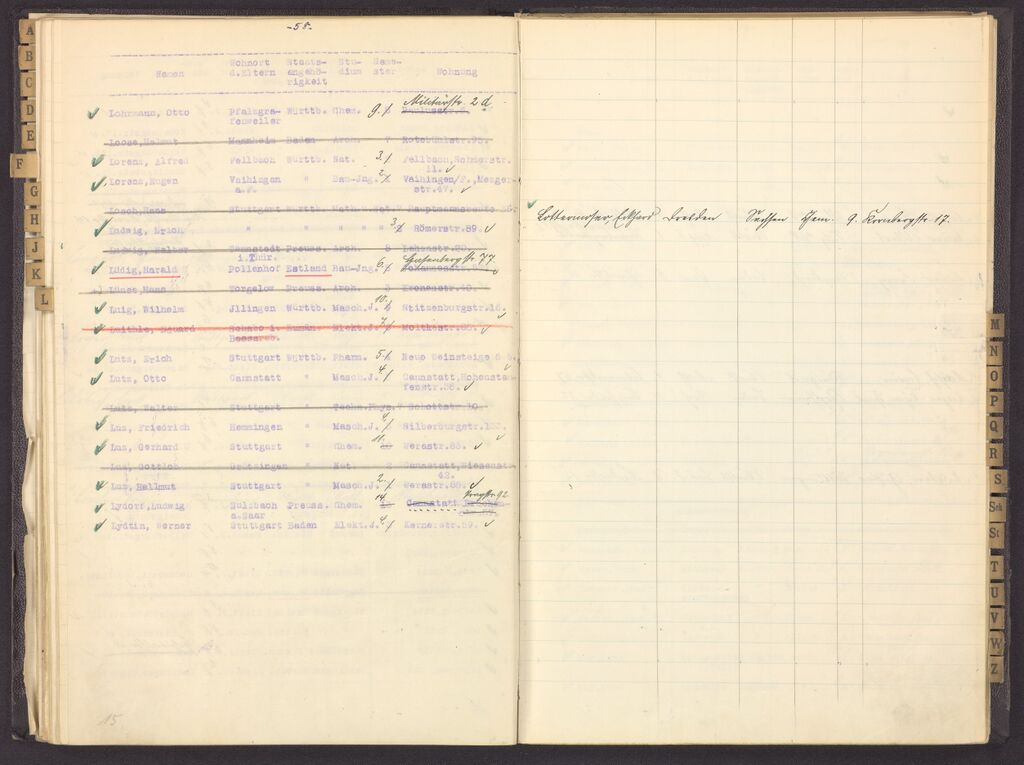 -58-
Wohnort Staats- Stu- Seme-
Namen d.Eltern angehö- dium ster Wohnung
rigkeit
Militärstr. 2 d
Lohrmann, Otto Pfalzgra- Württb. Chem. 9.
fenweiler
Loose, Helmut Mannheim Baden Arch. 7 Rotebühlstr.95.
3.
Lorenz, Alfred Fellbach Württb. Nat. Fellbach,
11.
2.
Lorenz, Eugen Vaihingen " Bau-Jng. Vaihingen/F., Metzger-
a.F. str.47.
Losch, Hans Stuttgart Württb. Math.u.Nat.
3.
Ludwig, Erich " " " " Römerstr.89
Ludwig, Walter Tennstedt Preuss. Arch. 8 Lehenstr.20.
i.Thür.
77
Lüdig, Harald Pollenhof Estland Bau-Jng. 6.
Hans Torgelow Preuss. Arch. 3 Kronenstr.40.
10.
Luig, Wilhelm Jllingen Württb. Masch.J. Stitzenburgstr.16.
7.
Luithle, Eduard Schabo i. Rumän- Elekt.J. Moltkestr.
Bessarab.
Lutz, Erich Stuttgart Württb. Pharm. 5. Neue Weinsteige
4.
Lutz, Otto Cannstatt " Masch.J. Cannstatt, Hohenstau-
fenstr.
Lutz, Walter Stuttgart " Techn.Phys. 7 Schottstr.10.
Lux, Friedrich Hemmingen " Masch.J. Silberburgstr.
11.
Lux, Gerhard Stuttgart " Chem. 10 Werastr.
Lux, Gottlob Grötzingen " Nat. 2 Cannstatt, Wiesenstr.
42.
2.
Lux, Hellmut Stuttgart " Masch.J. Werastr.
14. 92
Lydorf, Ludwig Sulzbach Preuss. Chem. Cannstatt,
a.Saar
4.
Lydtin, Werner Stuttgart Baden Elekt.J. Kernerstr.59.
15
Lottermoser Eckhard Dresden Sachsen Chem. 9. Kornbergstr. 17.
A
B
C
D
E
F
G
H
J
K
L
M
N
O
P
Q
R
S
Sch
St
T
U
V
W
Z